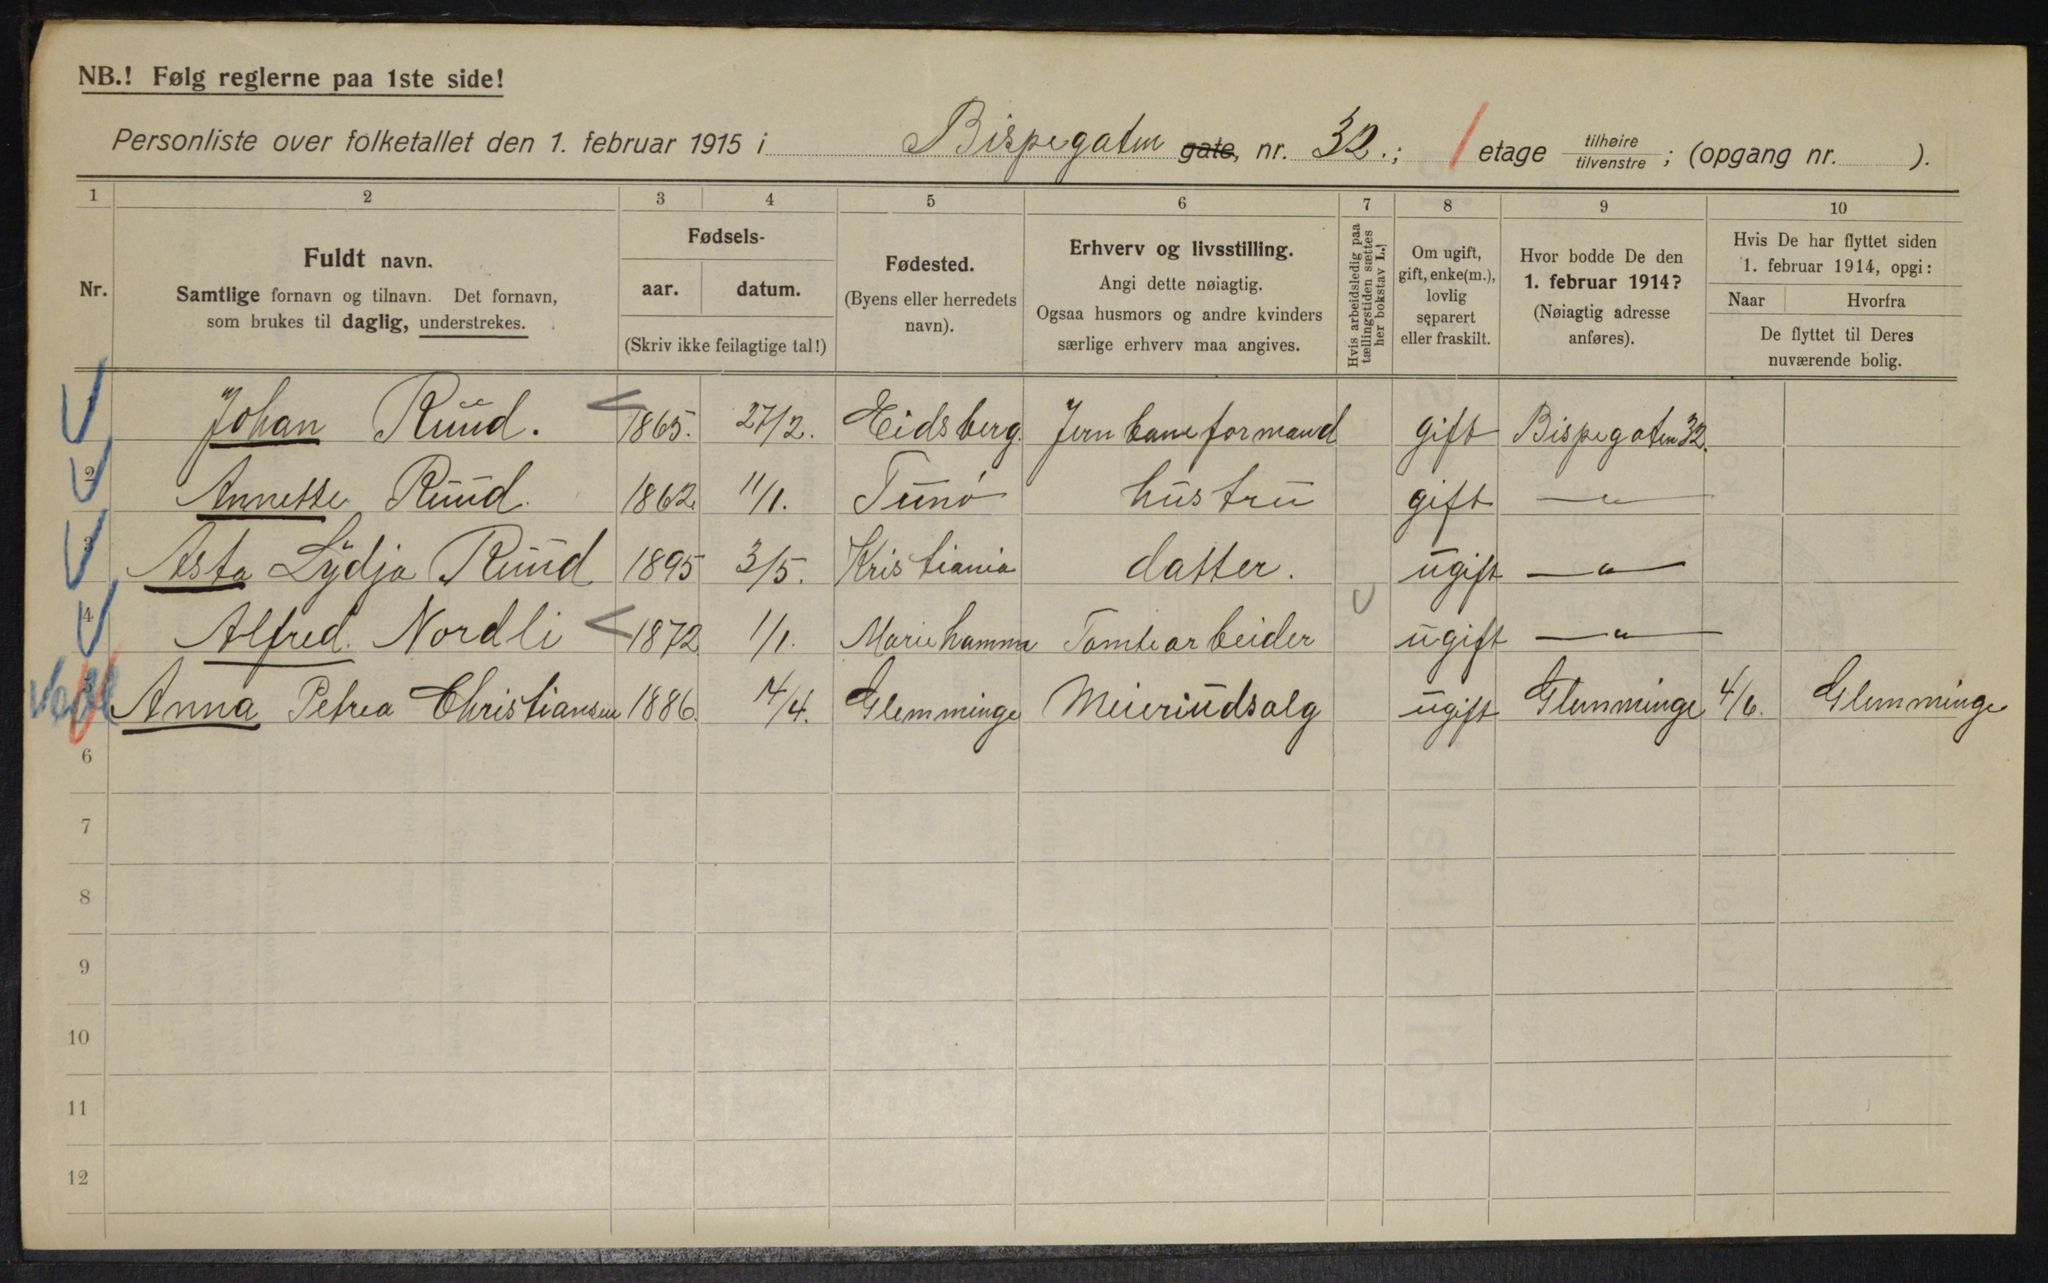 NB.! Følg reglerne paa 1ste side!
Personliste over folketallet den 1. februar 1915 i Bispegaten gate, nr. 32.; 1 etage tilhøire/tilvenstre; (opgang nr. ).
1 2 3 4 5 6 7 8 9 10
Nr.
Fuldt navn.
Samtlige fornavn og tilnavn. Det fornavn,
som brukes til daglig, understrekes.
Fødsels-
aar. datum.
(Skriv ikke feilagtige tal!)
Fødested.
(Byens eller herredets
navn).
Erhverv og livsstilling.
Angi dette nøiagtig.
Ogsaa husmors og andre kvinders
særlige erhverv maa angives.
Hvis arbeidsledig paa
tællingstiden sættes
her bokstav L.)
Om ugift,
gift, enke(m.),
lovlig
separert
eller fraskilt.
Hvor bodde De den
1. februar 1914?
(Nøiagtig adresse
anføres).
Hvis De har flyttet siden
1. februar 1914, opgi:
Naar Hvorfra
De flyttet til Deres
nuværende bolig.
Johan Ruud. 1865. 27/2. Eidsberg. Jernbaneformand gift Bispegaten 32.
2 Annette Ruud. 1862. 11/1. Tunø hustru gift — " —
3 Asta Lydja Ruud 1895 3/5. Kristiania datter. ugift — " —
4 Alfred. Nordli 1872 1/1. Mariehamma Tomtearbeider ugift — " —
5 Anna Petrea Christiansen 1886. 14/4. Glemminge Meieriudsalg ugift Glemminge 4/6. Glemminge
6
7
8
9
10
11
12